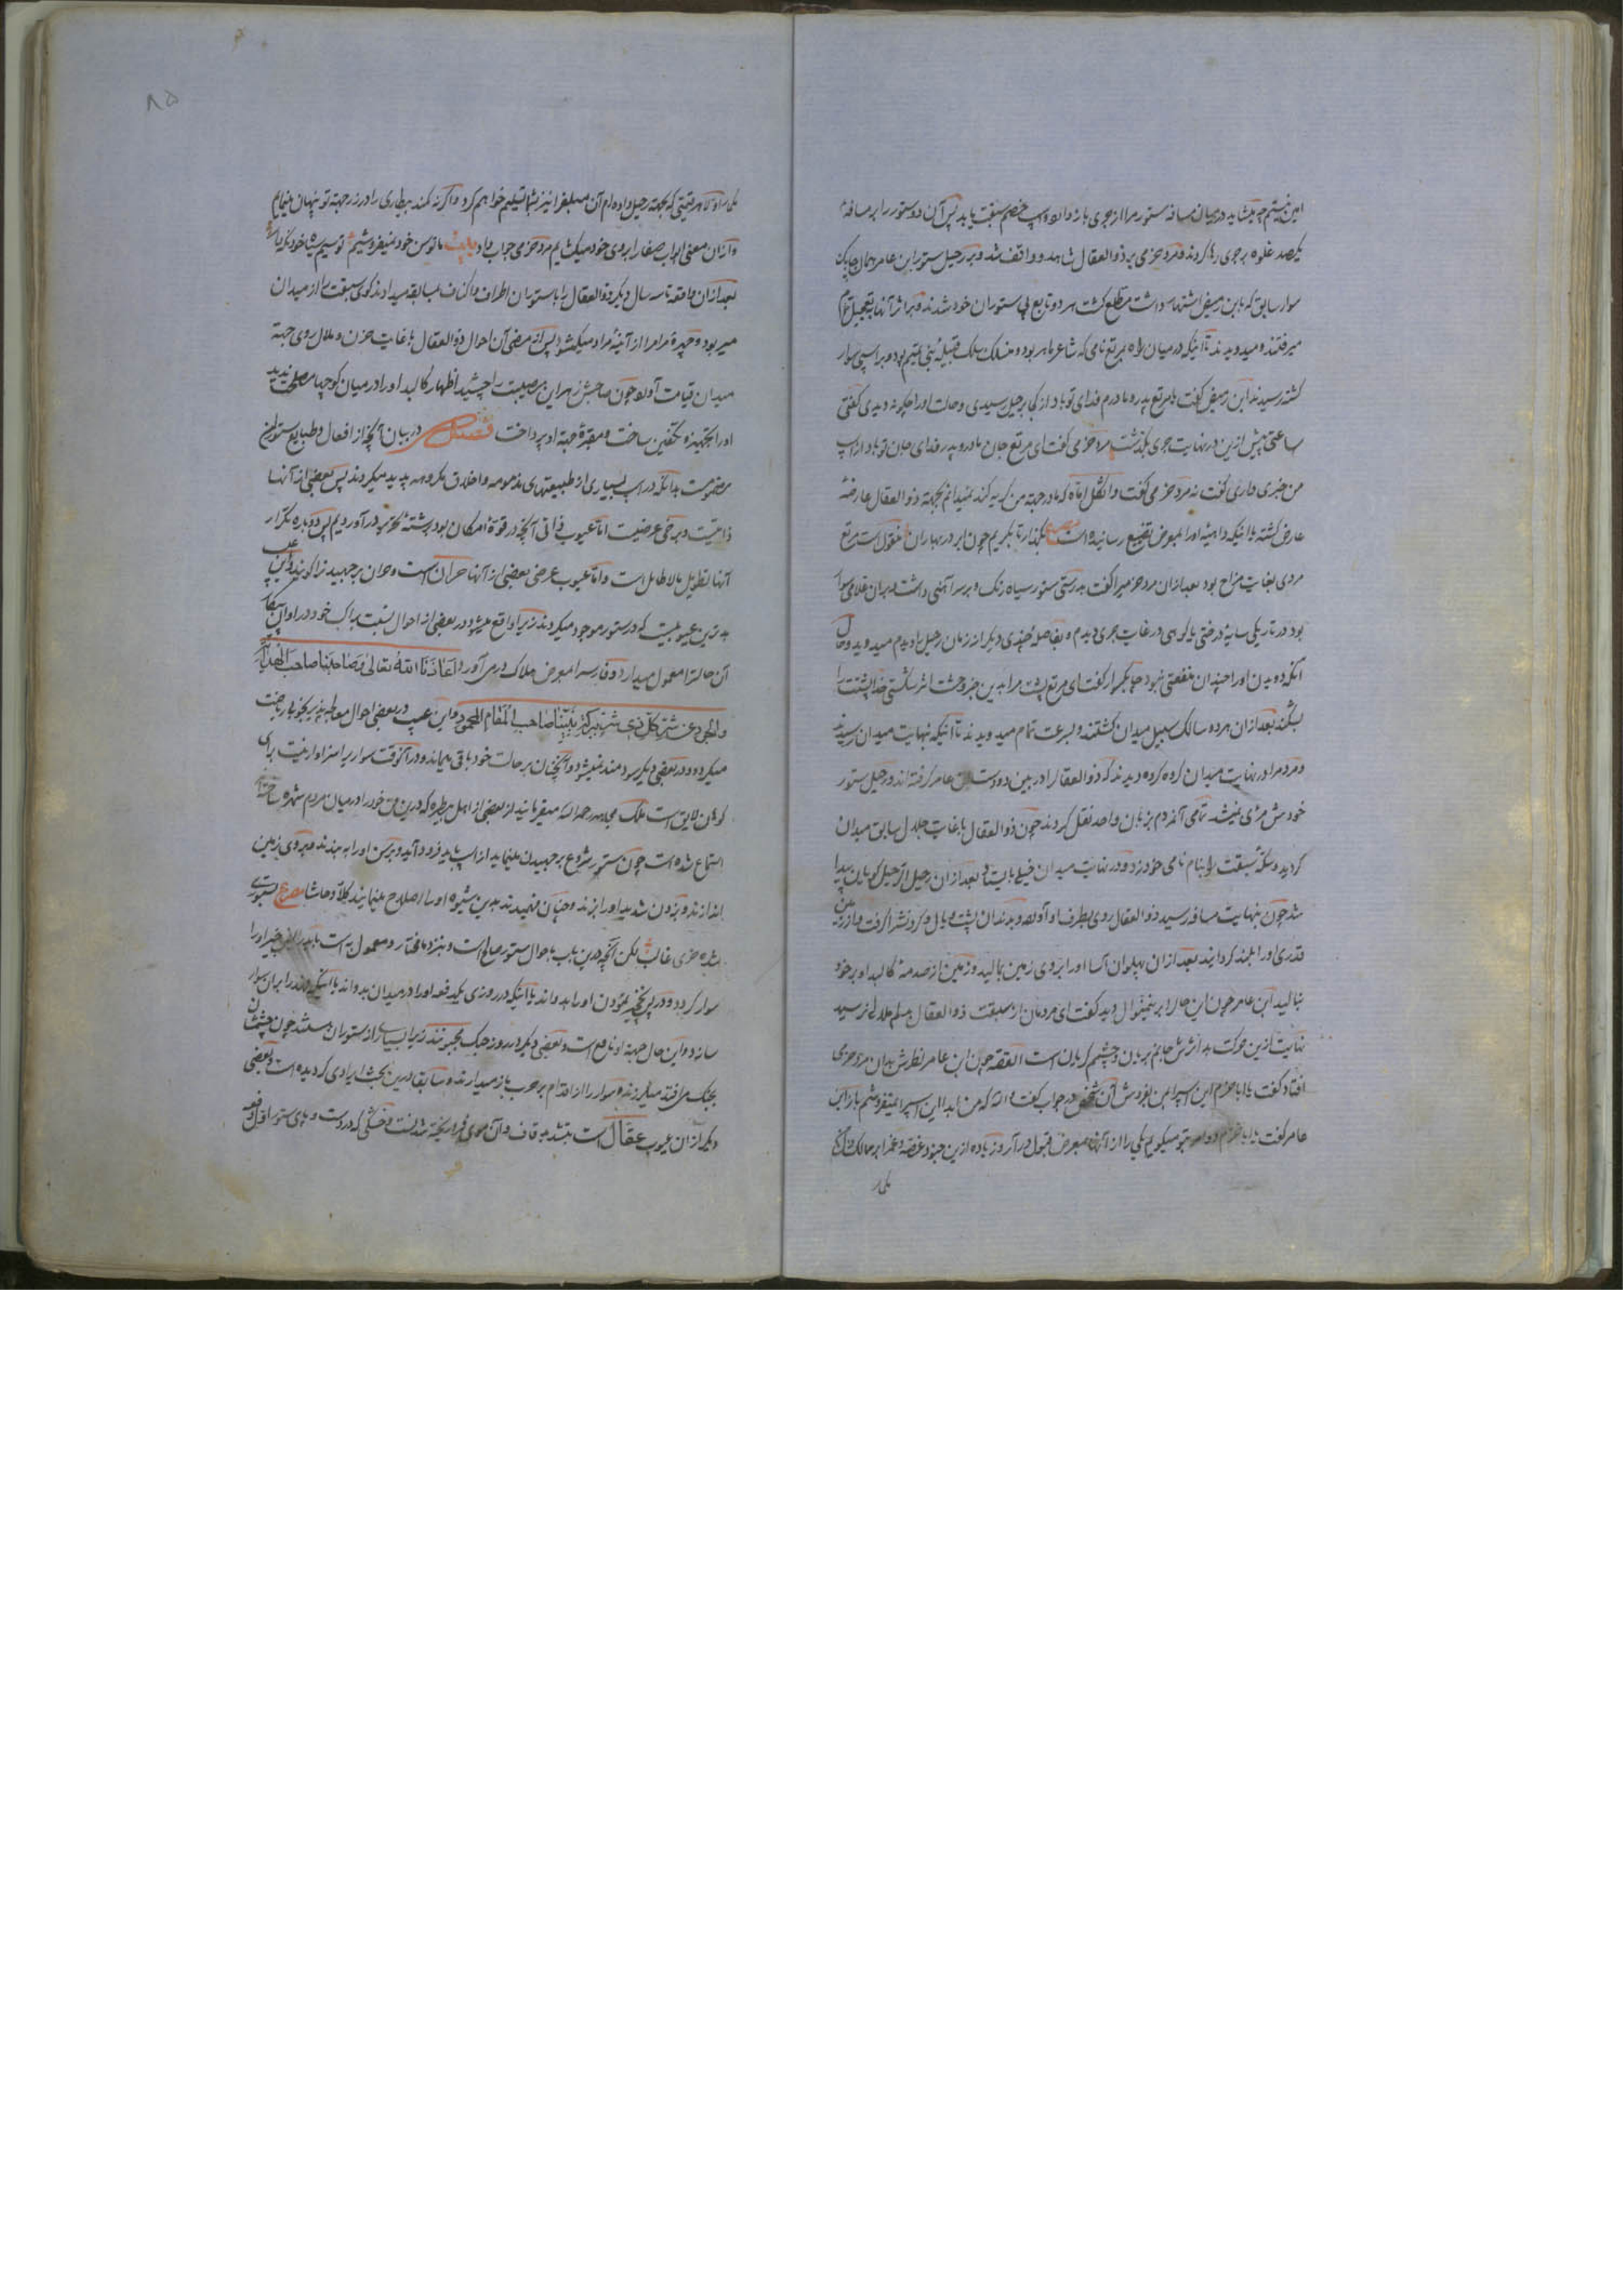 امین نیستم چه میشاید در میان مسافه ستور مرا از جری باز دارد و اسپ خصم سبقت یابد پس آن دو ستور را بر مسافهٔ
یکصد غلوه بر جری رها کردند و مرد حزمی بر ذوالعقال شاهد و واقف شد و بر رحیل ستور ابن عامر همان چابک
سوار سابق که بابن زمیض اشتهار داشت مطلع گشت هر دو تابع پی ستوران خود شدند و بر اثر آنها بتعجیل تمام
میرفتند و میدویدند تا اینکه در میان راه مرتع نامی که شاعر ماهر بود و منسلک بسلک قبیلهٔ بنی تمیم بود و بر اسپی سوار
گشته رسیدند ابن زمیض گفت یا مرتع پدر و مادرم فدای تو باد از کی بر رحیل رسیدی و حالت او را چگونه دیدی گفتی
ساعتی پیش ازین در نهایت جری بگذشت مرد حزمی گفت ای مرتع جان مادر و پدر فدای جان تو باد از اسپ
من خبری داری گفت نه مرد حزمی گفت واثکل اماه که مادر جهته من گریه کند نمیدانم بجهته ذوالعقال عارضهٔ
عارض گشته یا اینکه داهیهٔ او را بمعرض تضییع رسانیده است مصرع بگذار تا بگریم چون ابر در بهاران منقول است مرتع
مردی بغایت مزاح بود بعد ازان مرد حزمی را گفت بدرستی ستور سیاه رنگ و بر سر آهنی داشت و بران غلامی سوار
بود در تاریکی سایهٔ درختی یا کوهی در غایت جری دیدم و بفاصلهٔ چندی دیگر از زمان رحیل را دیدم میدوید و حال
آنکه دویدن او را چندان منفعتی نبود چابکسوار گفت ای مرتع پشت مرا بدین خبر وحشت اثر شکستی خدا پشتت را
بشکند بعد ازان هر دو سالک سبیل میدان گشتند و بسرعت تمام میدویدند تا اینکه بنهایت میدان رسیدند
و مردم را در نهایت میدان گروه گروه دیدند که ذوالعقال را در بین دو دست ابن عامر گرفته اند و رحیل ستور
خودش مرئی نمیشد تمامی آنمردم بزبان واحد نقل کردند چون ذوالعقال با غایت جلال سابق میدان
گردید و سکهٔ سبقت را بنام نامی خود زد و در نهایت میدان خیلی بایستاد بعد ازان رحیل از رحیل گویان پیدا
شد چون بنهایت مسافه رسید ذوالعقال روی بطرف او آورد و بدندان پشت و یال و گردنش را گرفت و از زمین
قدری او را بلند گردانید بعد ازان پهلوان آسا او را بر روی زمین بمالید و زمین از صدمهٔ کالبد او بر خود
بنالید ابن عامر چون این حال را برینمنوال دید گفت ای مردمان از سبقت ذوالعقال بدلم ملالی نرسید
نهایت ازین حرکت بد اثرش جانم بریان و چشمم گریان است القصه چون ابن عامر نظرش بدان مرد حزمی
افتاد گفت یا ابا حزم این اسپ را بمن بفروش آن شخص در جواب گفت والله که من ابدا این اسپ را نمیفروشم باز ابن
عامر گفت یا ابا حزم دو امر بتو میگویم یکی را از آنها بمعرض قبول در آر و زیاده ازین جنود غصه و غم را بر ممالک
یکی را
یکی را اولا هر قیمتی که بجهته رحیل داده ام آن مبلغ را نیز بشما تسلیم خواهم کرد و اگر نه کمند بیطاری را در زر جهته تو پنهان مینمایم
و ازان معنی ابواب صفا را بروی خود میکشایم مرد حزمی جواب داد بیت ما توسن خود نمیفروشیم تو سیم سیاه خود نگه دار
بعد ازان واقعه تا سه سال دیگر ذوالعقال را با ستوران اطراف و اکناف بسابقه میدادند گوی سبقت را از میدان
میربود و چهرهٔ مرام را از آئینهٔ مراد میکشود پس از مرضی آن احوال ذوالعقال با غایت حزن و ملال روی جهته
میدان قیامت آورد چون صاحبش زهر این مصیبت را چشید اظهار کالبد او را در میان کوچها مصلحت ندید
او را تجهیز و تکفین ساخت و مقبرهٔ جهته او پرداخت فصل در بیان آنچه از افعال و طبایع ستوران
مذموم است بدانکه در اسپ بسیاری از طبیعتهای مذمومه و اخلاق مکروهه پدید میگردند پس بعضی از آنها
ذاتیست و برخی عرضیست اما عیوب ذاتی آنچه در قوهٔ امکان بود برشتهٔ تحریر در آوردیم پس دوباره تکرار
آنها تطویل بلا طایل است و اما عیوب عرضی بعضی از آنها حران است و حران برجهیدن را گویند و این عیب
بدترین عیوبیست که در ستور موجود میگردند زیرا واقع میشود در بعضی از احوال نسبت براکب خود در اوان پیکار
آن حالت را معمول میدارد و فارس را بمعرض هلاک در می آورد اعاذنا الله تعالی و صاحبنا صاحب الهدایة
والجود عن شر کل ذی شر ببرکة نبینا صاحب المقام المحمود و این عیب در بعضی احوال معالجه پذیر بخوبی ریاضت
میگردد و در بعضی دیگر سودمند نمیشود و آنچنان بر حالت خود باقی میماند و در آنوقت سواری را سزاوار نیست برای
کوهان لایق است ملک مجاهد رحمه الله میفرمایند از بعضی از اهل بیطره که درین فن خود را در میان مردم شهره ساخته اند
استماع شده است چون ستور شروع بر جهیدن مینماید از اسپ باید فرود آید و برسن او را ببندند و بر روی زمین
اندازند و بزدن شدید او را بزنند و چنان فهمیدند بدین شیوه او را اصلاح مینمایند کلا و حاشا مصرع ستوری
شده خوی غالب لکن آنچه درین باب باحوال ستور صالح است و نزد ما مختار و معمول به است باید راکب خبیر او را
سوار گردد و در پی نخچیر نمودن او را بدواند یا اینکه در روزی یکدفعه او را در میدان بدواند یا اینکه دزد را بران سوار
سازد و این حال جهته او نافع است و بعضی دیگر در روز جنگ مجبونند زیرا بسیاری از ستوران هستند چون چشمشان
بجنگ می افتد میلرزند و سوار را از اقدام بر حرب باز میدارند و سابقا درین بحث ایرادی گردیده است و بعضی
دیگر از ان عیوب عقال است بتشدید قاف و آن موی فرو ریخته شدنست و خشکی که در دست و پای ستور اول دفعه
۸۵